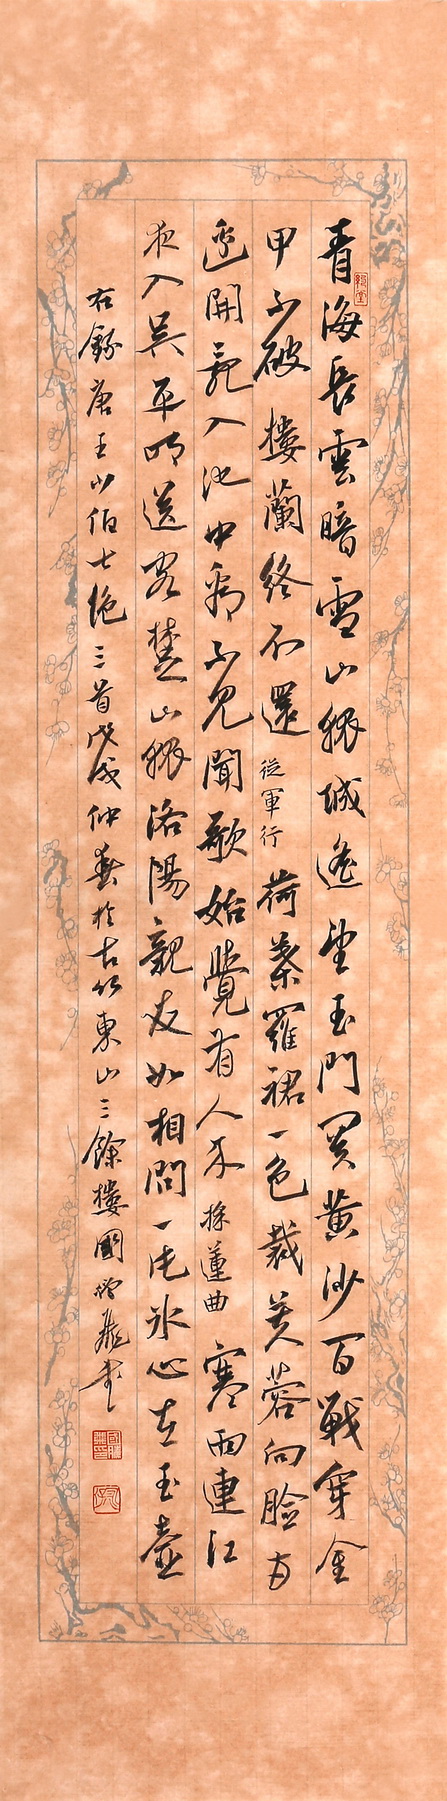 青海長雲暗雪山孤城遙望玉門關黃沙百戰穿金
甲不破樓蘭終不還從軍行荷葉羅裙一色裁芙蓉向臉兩
邊開亂入池中看不見聞歌始覺有人來採蓮曲寒雨連江
夜入吳平明送客楚山孤洛陽親友如相問一片冰心在玉壺
右錄唐王少伯七絕三首戊戌仲春於古東山三餘樓國書